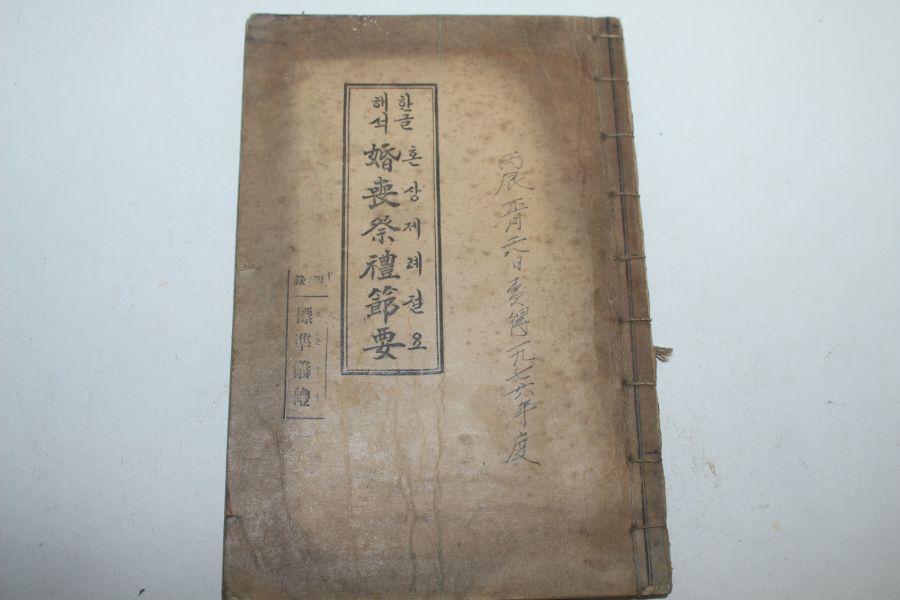 丙辰 正月 日 賣得 一九七六年度
한글
해석
혼상제례절요
婚喪祭禮節要
附錄
標準儀禮